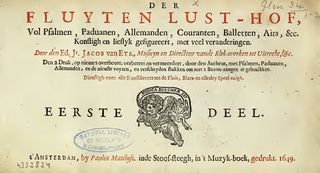 DER
Glen 34
FLUYTEN LUST-HOF,
Vol Psalmen, Paduanen, Allemanden, Couranten, Balletten, Airs, &c.
Konstigh en lieflyk gefigureert, met veel veranderingen.
Door den Ed. Jr. JACOB VAN EYK, Musicyn en Directeur vande Klok-werken tot Uitrecht, &c.
Den 2. Druk, op nieuws overhoort, verbetert en vermeerdert, door den Autheur, met Psalmen, Paduanen,
Allemanden, en de nieuste voyzen, en verscheyden stukken om met 2 Boven-zangen te gebruikken.
Dienstigh voor alle Konst-lievers tot de Fluit, Blaes- en allerley Speel-tuigh.
EERSTE DEEL.
NATIONAL LIBRARY
OF SCOTLAND
EDINBURGH
4332824
t'AMSTERDAM, by Paulus Matthysz. inde Stoof-steegh, in 't Muzyk-boek, gedrukt. 1649.